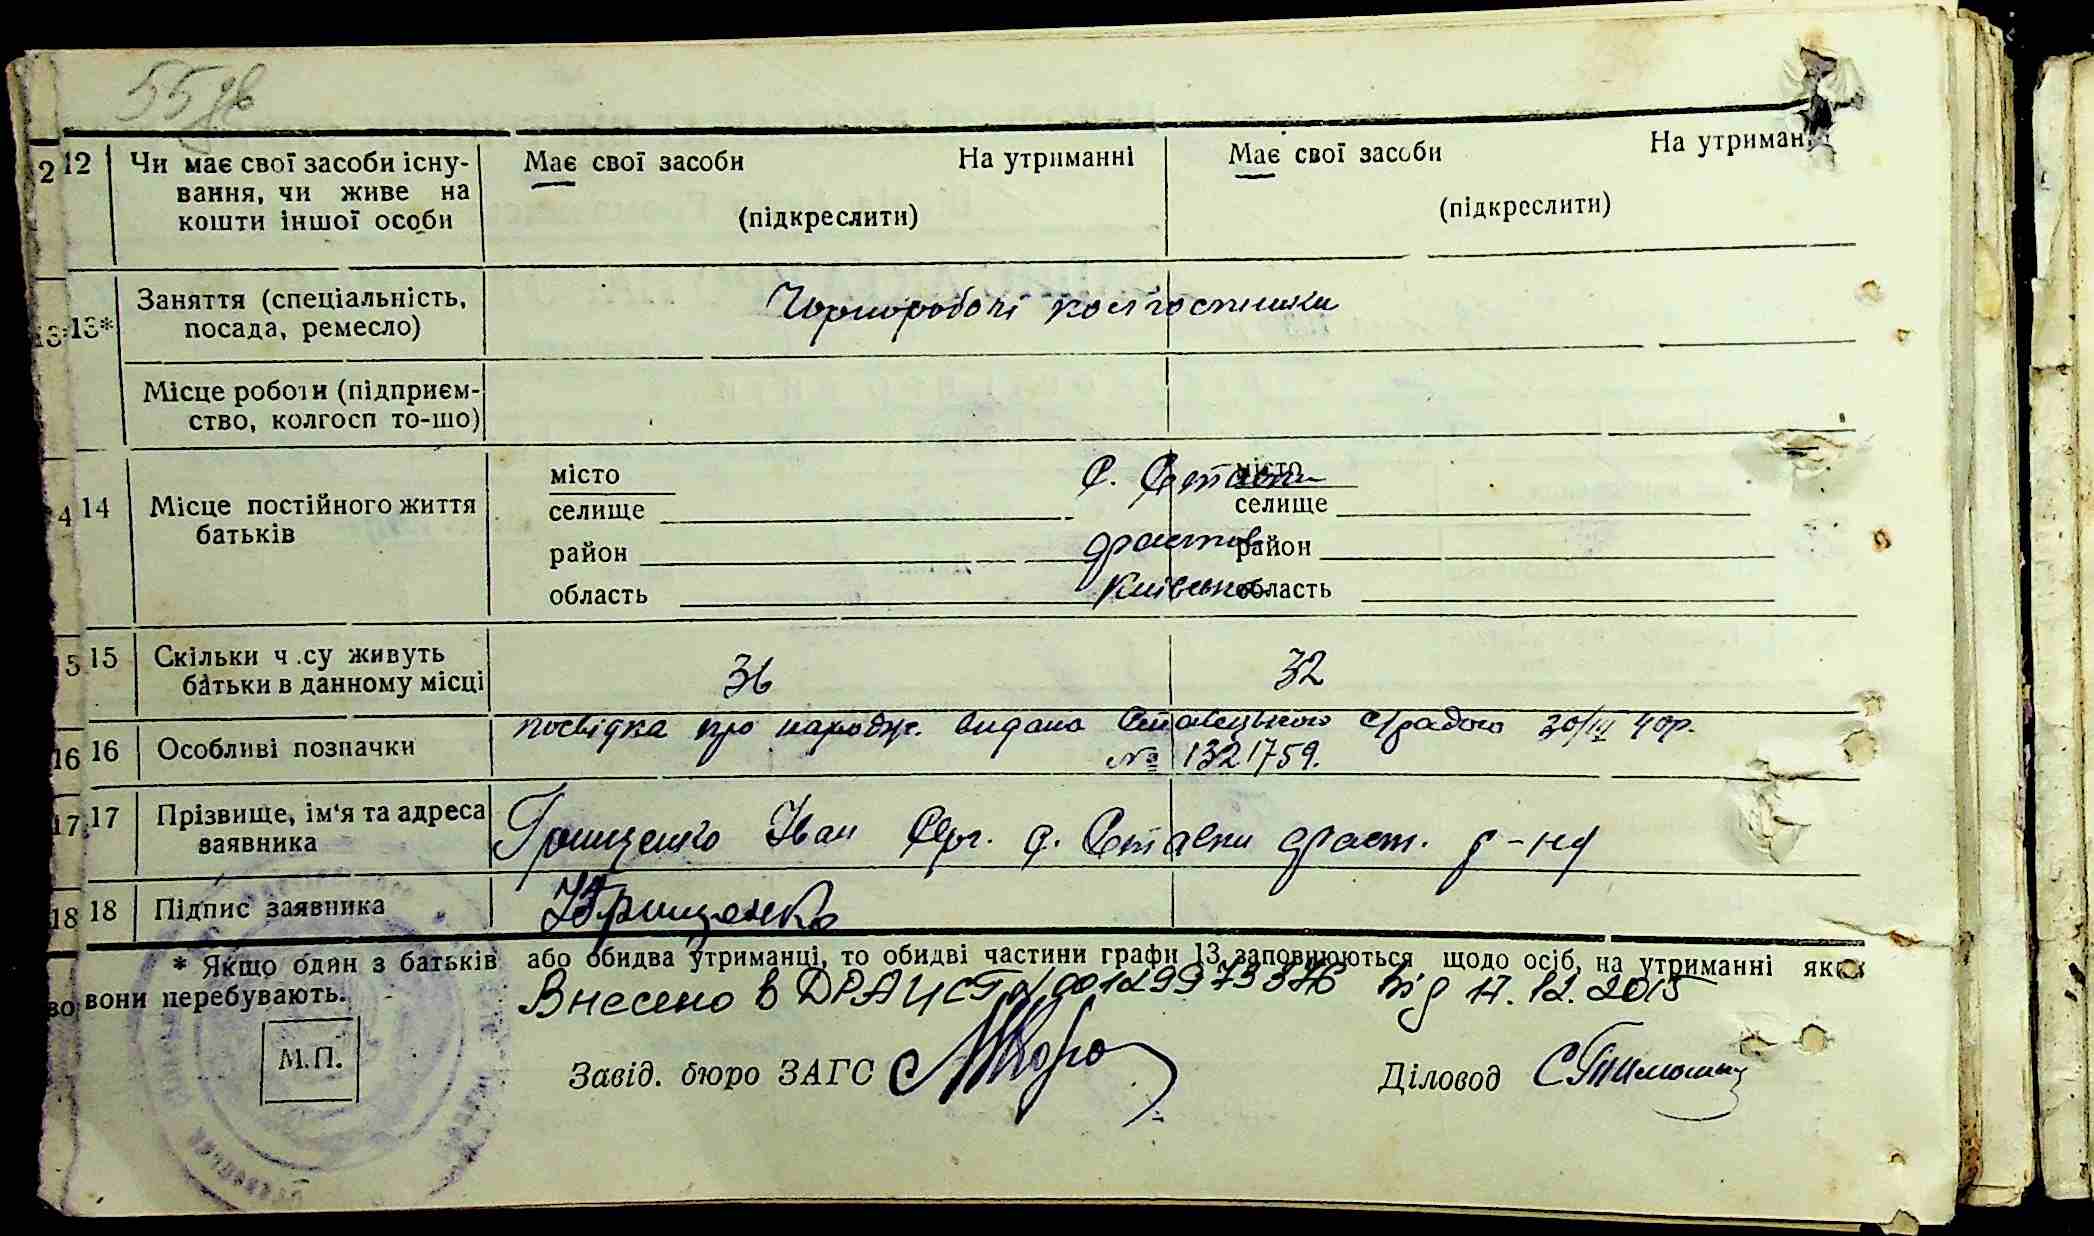 55 зв
2 12 Чи має свої засоби існу- Має свої засоби На утриманні Має свої засоби На утриман
вання, чи живе на
кошти іншої особи (підкреслити) (підкреслити)
13 13* Заняття (спеціальність, Чорноробочі колгоспники
посада, ремесло)
Місце роботи (підприєм-
ство, колгосп то-що)
4 14 Місце постійного життя
батьків
місто с. Ставки місто
селище селище
район Фастов район
область Київська область
5 15 Скільки ч.су живуть 36 32
батьки в данному місці
16 16 Особливі позначки посвідка про народж. видана Ставецького с/радою 30/IV 40р.
№ 1321759.
17 17 Прізвище, ім'я та адреса
заявника Грищенко Іван Сер. с. Ставки Фаст. р-ну
18 18 Підпис заявника Грищенко
* Якщо один з батьків або обидва утриманці, то обидві частини графи 13 заповнюються щодо осіб, на утриманні яких
вони перебувають.
Внесено в ДРАЦСГ №00129973376 від 17.12.2015
М.П. Завід. бюро ЗАГС Діловод